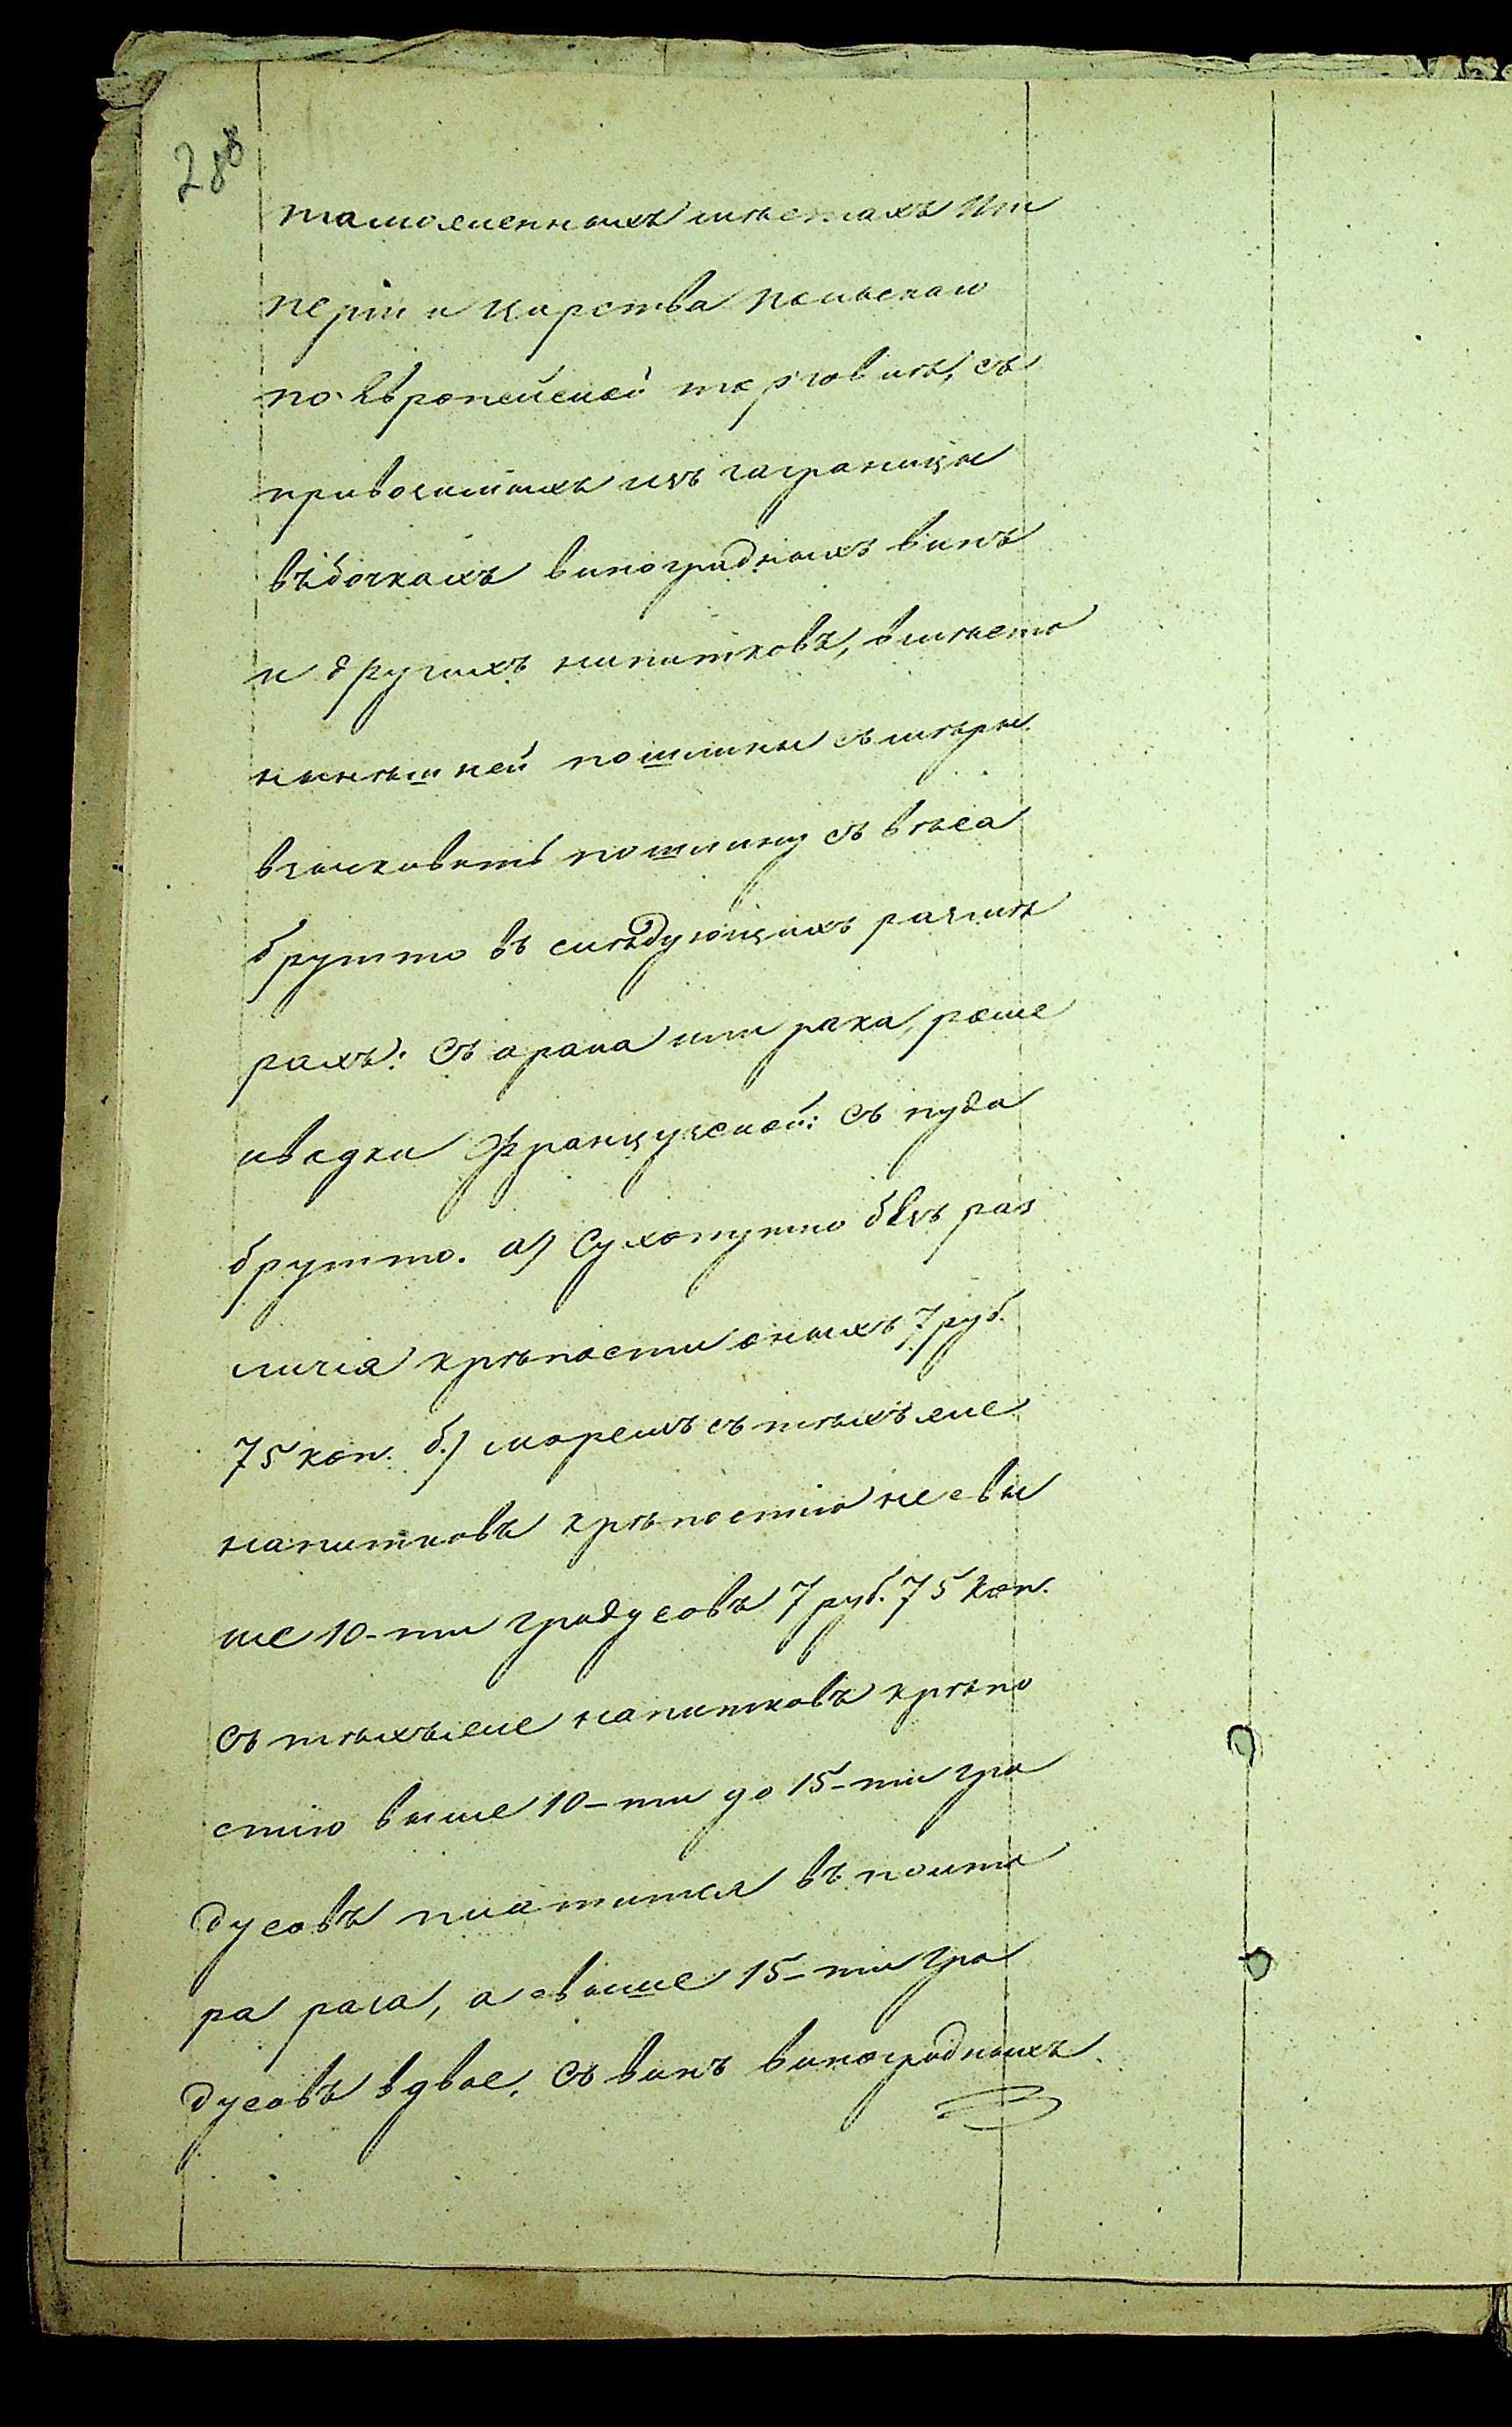 288
таможенныхъ мѣстахъ Им
перiи и Царства Польскаго
по Европейской торговлѣ, съ
привозимыхъ изъ заграницы
въ бочкахъ виноградныхъ винъ
и другихъ напитковъ, вмѣсто
нынѣшней пошлины съ мѣры
взыскивать пошлину съ вѣса
брутто въ слѣдующихъ размѣ
рахъ: Съ арака или рака, рома
и водки Французской: Съ пуда
брутто. а) Сухопутно безъ раз
личiя крѣпости оныхъ 7 руб.
75 коп. б.) моремъ съ тѣхъ же
напитковъ крѣпостiю не свы
ше 10-ти градусовъ 7 руб. 75 коп.
Съ тѣхъ же напитковъ крѣпо
стiю выше 10-ти до 15-ти гра
дусовъ платится въ полто
ра раза, а свыше 15-ти гра
дусовъ вдвое. Съ винъ виноградныхъ